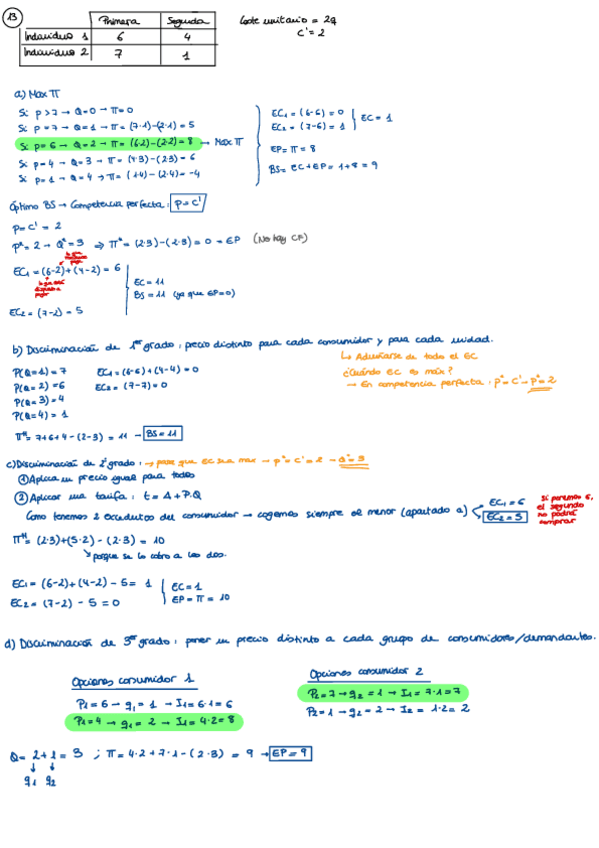 13
Primera Segunda
Individuo 1 6 4
Individuo 2 7 1
Coste unitario = 2q
C' = 2
a) Max π
Si p > 7 → Q = 0 → π = 0
Si p = 7 → Q = 1 → π = (7·1) - (2·1) = 5
Si p = 6 → Q = 2 → π = (6·2) - (2·2) = 8 → Max π
Si p = 4 → Q = 3 → π = (4·3) - (2·3) = 6
Si p = 1 → Q = 4 → π = (1·4) - (2·4) = -4
EC1 = (6-6) = 0
EC2 = (7-6) = 1
EC = 1
EP = π = 8
BS = EC + EP = 1 + 8 = 9
Óptimo BS → Competencia perfecta: p = C'
p = C' = 2
p* = 2 → Q* = 3 ⇒ π* = (2·3) - (2·3) = 0 = EP (No hay CF)
EC1 = (6-2) + (4-2) = 6
EC2 = (7-2) = 5
EC = 11
BS = 11 (ya que EP = 0)
b) Discriminación de 1er grado: precio distinto para cada consumidor y para cada unidad.
↳ Adueñarse de todo el EC
¿Cuándo EC es máx?
→ En competencia perfecta: p* = C' → p* = 2
P(Q=1) = 7
P(Q=2) = 6
P(Q=3) = 4
P(Q=4) = 1
EC1 = (6-6) + (4-4) = 0
EC2 = (7-7) = 0
πM = 7+6+4 - (2·3) = 11 → BS = 11
c) Discriminación de 2º grado: → para que EC sea max → p* = C' = 2 → Q* = 3
① Aplica un precio igual para todos
② Aplicar una tarifa: t = A + P·Q
Como tenemos 2 excedentes del consumidor → cogemos siempre el menor (apartado a)
EC1 = 6
EC2 = 5
Si ponemos 6, el segundo no podrá comprar
πM = (2·3) + (5·2) - (2·3) = 10
porque se lo cobro a los dos.
EC1 = (6-2) + (4-2) - 5 = 1
EC2 = (7-2) - 5 = 0
EC = 1
EP = π = 10
d) Discriminación de 3er grado: poner un precio distinto a cada grupo de consumidores/demandantes.
Opciones consumidor 1
P1 = 6 → q1 = 1 → I1 = 6·1 = 6
P1 = 4 → q1 = 2 → I1 = 4·2 = 8
Opciones consumidor 2
P2 = 7 → q2 = 1 → I1 = 7·1 = 7
P2 = 1 → q2 = 2 → I2 = 1·2 = 2
Q = 2 + 1 = 3 ; π = 4·2 + 7·1 - (2·3) = 9 → EP = 9
q1 q2